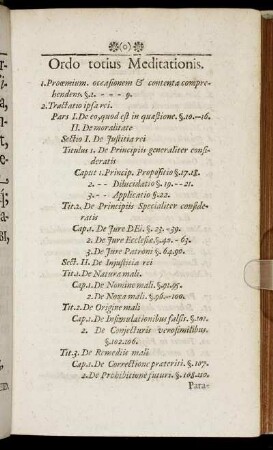 (o)
Ordo totius Meditationis.
1. Proœmium. occasionem & contenta compre-
hendens. §.1. - - - - 9.
2. Tractatio ipsa rei.
Pars I. De eo, quod est in quæstione. §.10.--16.
II. De moralitate
Sectio I. De Justitia rei
Titulus 1. De Principiis generaliter consi-
deratis
Caput 1. Princip. Propositio §.17.18.
2. - - Dilucidatio §. 19. --21.
3. -- Applicatio §.22.
Tit.2. De Principiis Specialiter conside-
ratis
Cap.1. De Jure DEi. §. 23. -39.
2. De Jure Ecclesiæ §.40. - 63.
3. De Jure Patroni §. 64.90.
Sect. II. De Injustitia rei
Tit.1. De Natura mali.
Cap.1. De Nomine mali. §.91.95.
2. De Noxa mali. §.96.--100.
Tit.2. De Origine mali
Cap.1. De Insimulationibus falsis. §.101.
2. De Conjecturis verosimilibus.
§.102.106.
Tit.3. De Remediis mali
Cap.1. De Correctione præteriti. §. 107.
2. De Prohibitione futuri. §. 108.110.
Para-